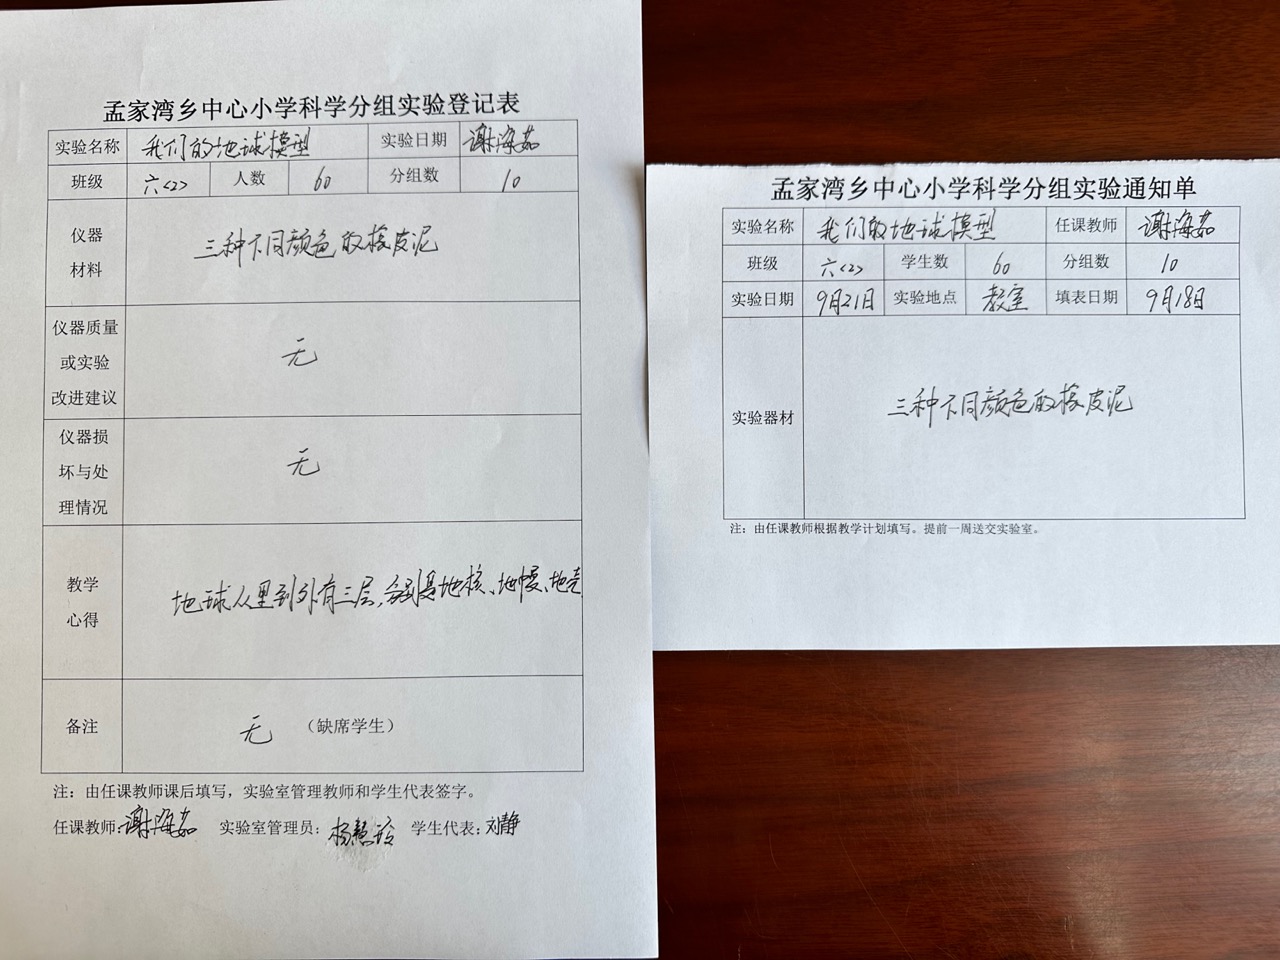 孟家湾乡中心小学科学分组实验登记表
实验名称 我们的地球模型 实验日期 谢海茹
班级 六<2> 人数 60 分组数 10
仪器
材料
三种不同颜色的橡皮泥
仪器质量
或实验
改进建议
无
仪器损
坏与处
理情况
无
教学
心得
地球从里到外有三层,分别是地核、地幔、地壳
备注 无 （缺席学生）
注：由任课教师课后填写，实验室管理教师和学生代表签字。
任课教师：谢海茹 实验室管理员：杨慧玲 学生代表：刘静
孟家湾乡中心小学科学分组实验通知单
实验名称 我们的地球模型 任课教师 谢海茹
班级 六<2> 学生数 60 分组数 10
实验日期 9月21日 实验地点 教室 填表日期 9月18日
实验器材 三种不同颜色的橡皮泥
注：由任课教师根据教学计划填写。提前一周送交实验室。